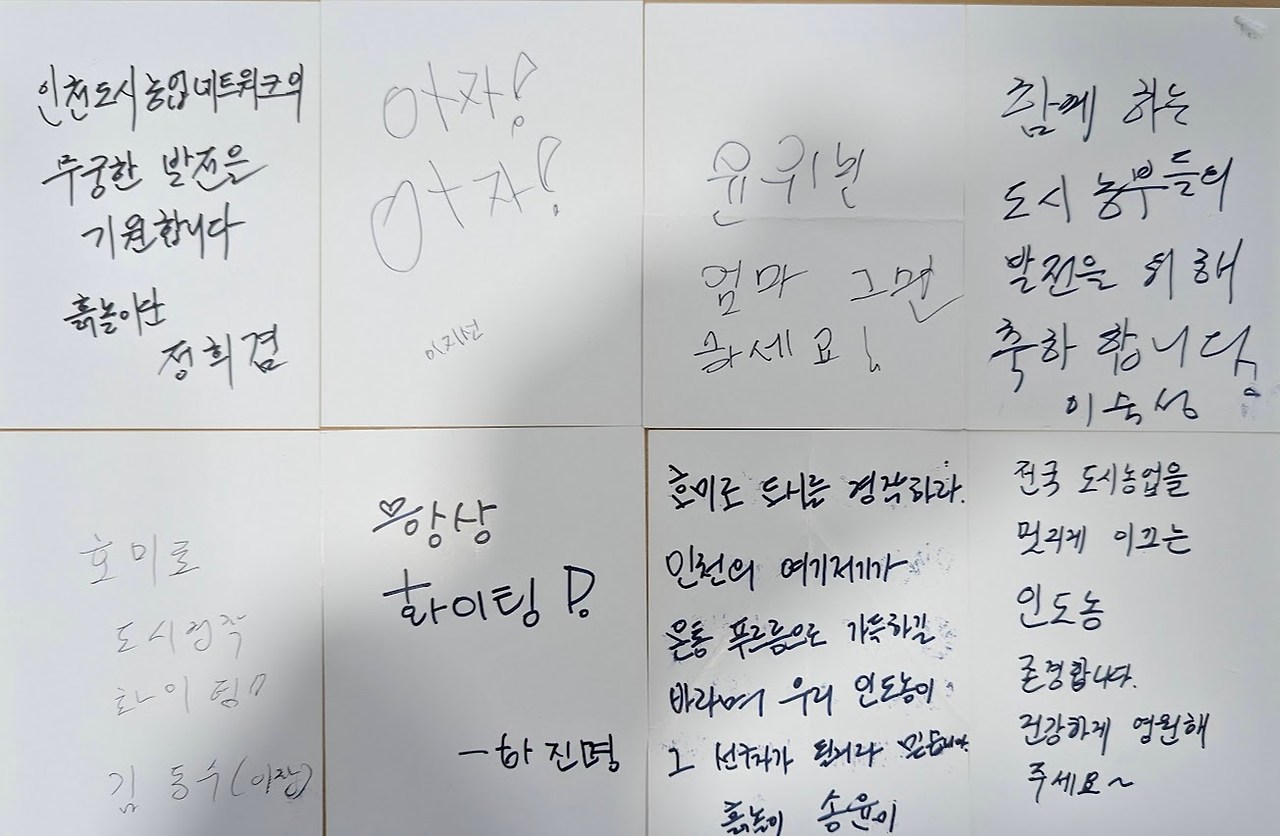 인천도시농업네트워크의
무궁한 발전을
기원합니다
흙놀이단
정희겸
아자!
아자!
이지선
윤위년
엄마 그만
하세요!
함께 하는
도시 농부들의
발전을 위해
축하 합니다.
이숙성
호미로
도시경작
화이팅!!
김동수(이장)
♡항상
화이팅!!
-하진명
호미로 도시를 경작하라.
인천의 여기저기가
온통 푸르름으로 가득하길
바라며 우리 인도농이
그 선구자가 되리라 믿습니다.
흙놀이 송윤이
전국 도시농업을
멋지게 이끄는
인도농
존경합니다.
건강하게 영원해
주세요~